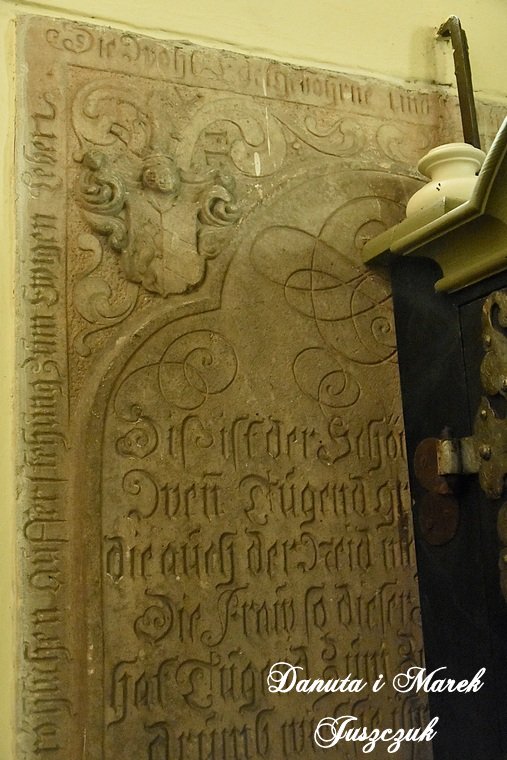 Die Wohl Edelgebohrne und
frölichen Aufferstehung zum Ewigen Leben
Dis ist der Schön
Wen Tugend
die auch der Neid
Die Fraw so dieser
hat Tugend zum
drumb
Danuta i Marek
Juszczuk